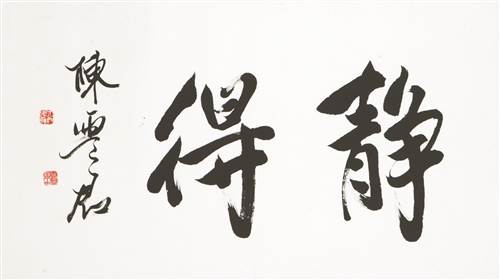 靜得
陳雲君